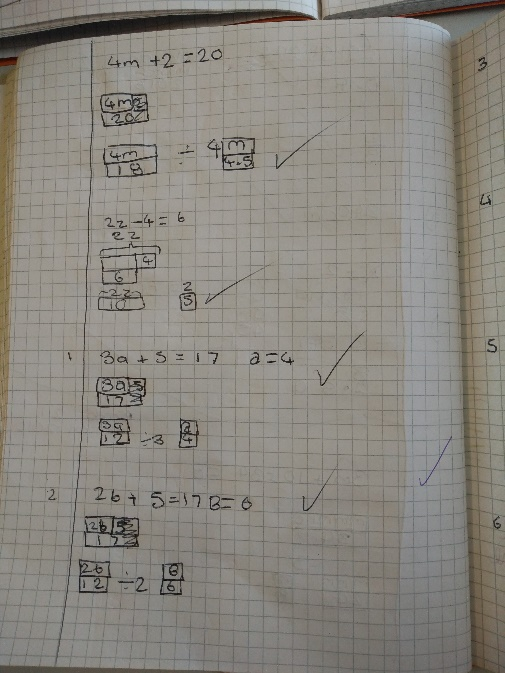 4m + 2 = 20
4m 2
20
4m ÷ 4 m
18 4.5
2z - 4 = 6
2z
4
6
2z
10 5
1 3a + 5 = 17 a = 4
3a 5
17
3a ÷3 a
12 4
2 2b + 5 = 17 B = 6
2b 5
17
2b ÷2 B
12 6
3
4
5
6